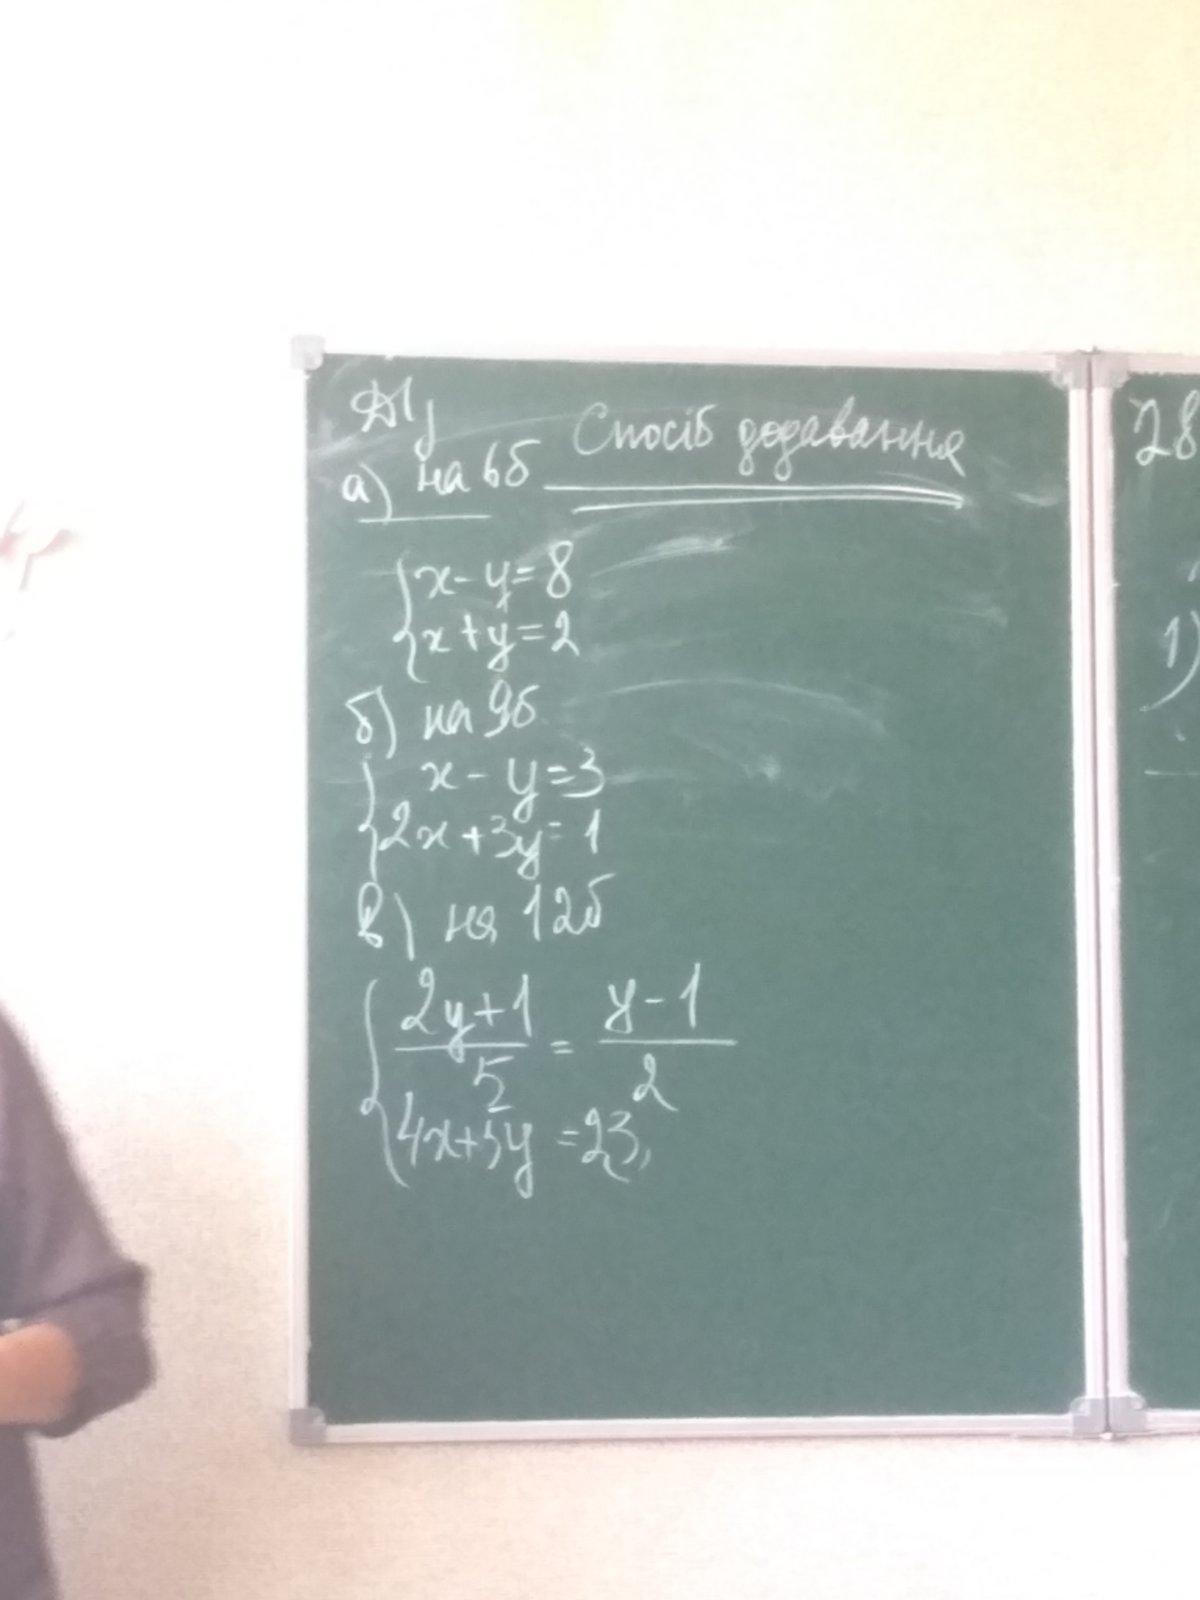 Спосіб додавання
а) на 6б
{ x - y = 8
x + y = 2
б) на 9б
{ x - y = 3
2x + 3y = 1
в) на 12б
{ 2y+1 / 5 = y-1 / 2
4x+3y = 23,
28
1)